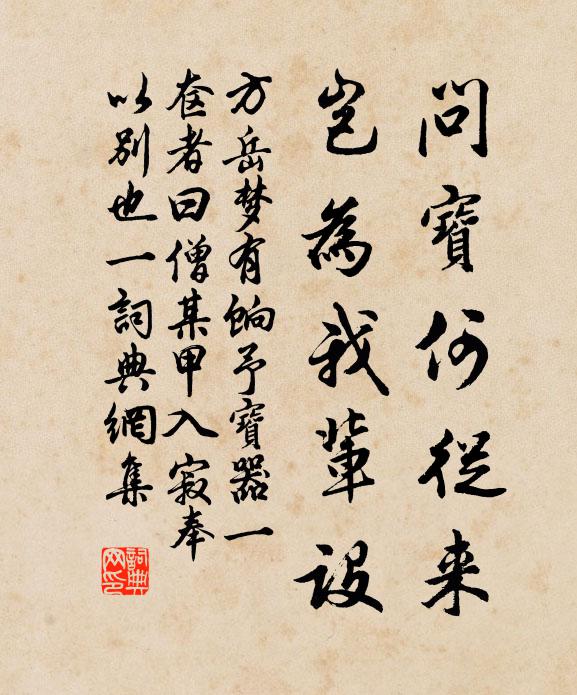 問寶何從来
岂為我輩設
方岳梦有餉予寶器一
奁者曰僧某甲入寂奉
以别也一詞典網集
詞典网印